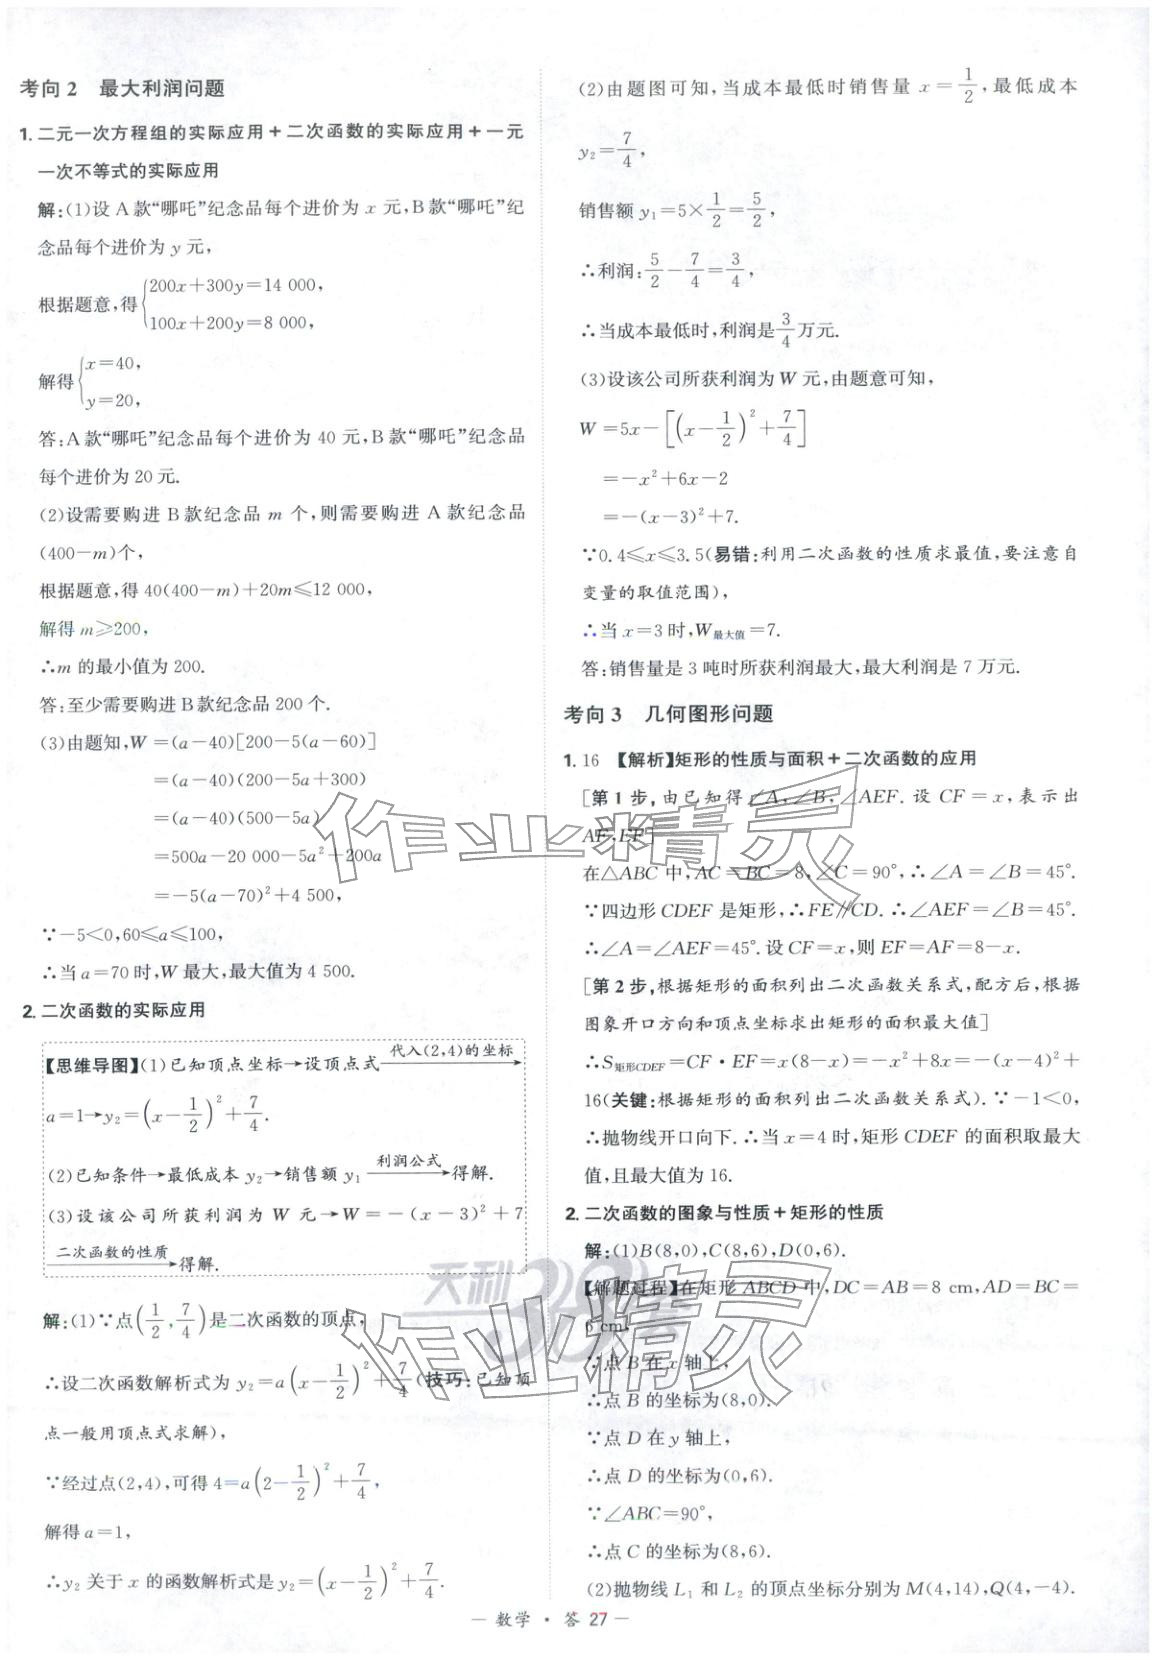 考向 2 最大利润问题
1. 二元一次方程组的实际应用＋二次函数的实际应用＋一元
一次不等式的实际应用
解:(1)设 A 款“哪吒”纪念品每个进价为 x 元,B 款“哪吒”纪
念品每个进价为 y 元,
根据题意,得{200x+300y=14 000,
100x+200y=8 000,
解得{x=40,
y=20,
答:A 款“哪吒”纪念品每个进价为 40 元,B 款“哪吒”纪念品
每个进价为 20 元.
(2)设需要购进 B 款纪念品 m 个,则需要购进 A 款纪念品
(400-m)个,
根据题意,得 40(400-m)+20m≤12 000,
解得 m≥200,
∴m 的最小值为 200.
答:至少需要购进 B 款纪念品 200 个.
(3)由题知,W=(a-40)[200-5(a-60)]
=(a-40)(200-5a+300)
=(a-40)(500-5a)
=500a-20 000-5a²+200a
=-5(a-70)²+4 500,
∵-5<0,60≤a≤100,
∴当 a=70 时,W 最大,最大值为 4 500.
2. 二次函数的实际应用
【思维导图】(1)已知顶点坐标→设顶点式 代入(2,4)的坐标→
a=1→y₂=(x-1/2)²+7/4.
(2)已知条件→最低成本 y₂→销售额 y₁ 利润公式→得解.
(3)设该公司所获利润为 W 元→W=-(x-3)²+7
二次函数的性质→得解.
解:(1)∵点(1/2,7/4)是二次函数的顶点,
∴设二次函数解析式为 y₂=a(x-1/2)²+7/4(技巧:已知顶
点一般用顶点式求解),
∵经过点(2,4),可得 4=a(2-1/2)²+7/4,
解得 a=1,
∴y₂ 关于 x 的函数解析式是 y₂=(x-1/2)²+7/4.
(2)由题图可知,当成本最低时销售量 x=1/2,最低成本
y₂=7/4,
销售额 y₁=5×1/2=5/2,
∴利润:5/2-7/4=3/4,
∴当成本最低时,利润是3/4万元.
(3)设该公司所获利润为 W 元,由题意可知,
W=5x-[(x-1/2)²+7/4]
=-x²+6x-2
=-(x-3)²+7.
∵0.4≤x≤3.5(易错:利用二次函数的性质求最值,要注意自
变量的取值范围),
∴当 x=3 时,W最大值=7.
答:销售量是 3 吨时所获利润最大,最大利润是 7 万元.
考向 3 几何图形问题
1. 16 【解析】矩形的性质与面积＋二次函数的应用
[第 1 步,由已知得∠A,∠B,∠AEF.设 CF=x,表示出
AF,EF]
在△ABC 中,AC=BC=8,∠C=90°,∴∠A=∠B=45°.
∵四边形 CDEF 是矩形,∴FE∥CD.∴∠AEF=∠B=45°.
∴∠A=∠AEF=45°.设 CF=x,则 EF=AF=8-x.
[第 2 步,根据矩形的面积列出二次函数关系式,配方后,根据
图象开口方向和顶点坐标求出矩形的面积最大值]
∴S矩形CDEF=CF·EF=x(8-x)=-x²+8x=-(x-4)²+
16(关键:根据矩形的面积列出二次函数关系式).∵-1<0,
∴抛物线开口向下.∴当 x=4 时,矩形 CDEF 的面积取最大
值,且最大值为 16.
2. 二次函数的图象与性质＋矩形的性质
解:(1)B(8,0),C(8,6),D(0,6).
【解题过程】在矩形 ABCD 中,DC=AB=8 cm,AD=BC=
6 cm,
∵点 B 在 x 轴上,
∴点 B 的坐标为(8,0).
∵点 D 在 y 轴上,
∴点 D 的坐标为(0,6).
∵∠ABC=90°,
∴点 C 的坐标为(8,6).
(2)抛物线 L₁ 和 L₂ 的顶点坐标分别为 M(4,14),Q(4,-4).
— 数学 · 答 27 —
作业精灵
天利38套
作业精灵